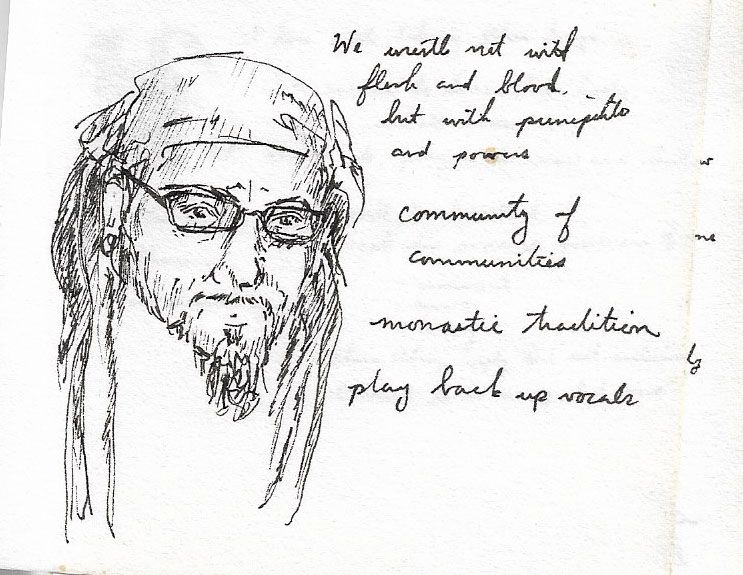 We wrestl not with
flesh and blood,
but with
and powers
community of
communities
monastic tradition
play back up vocals